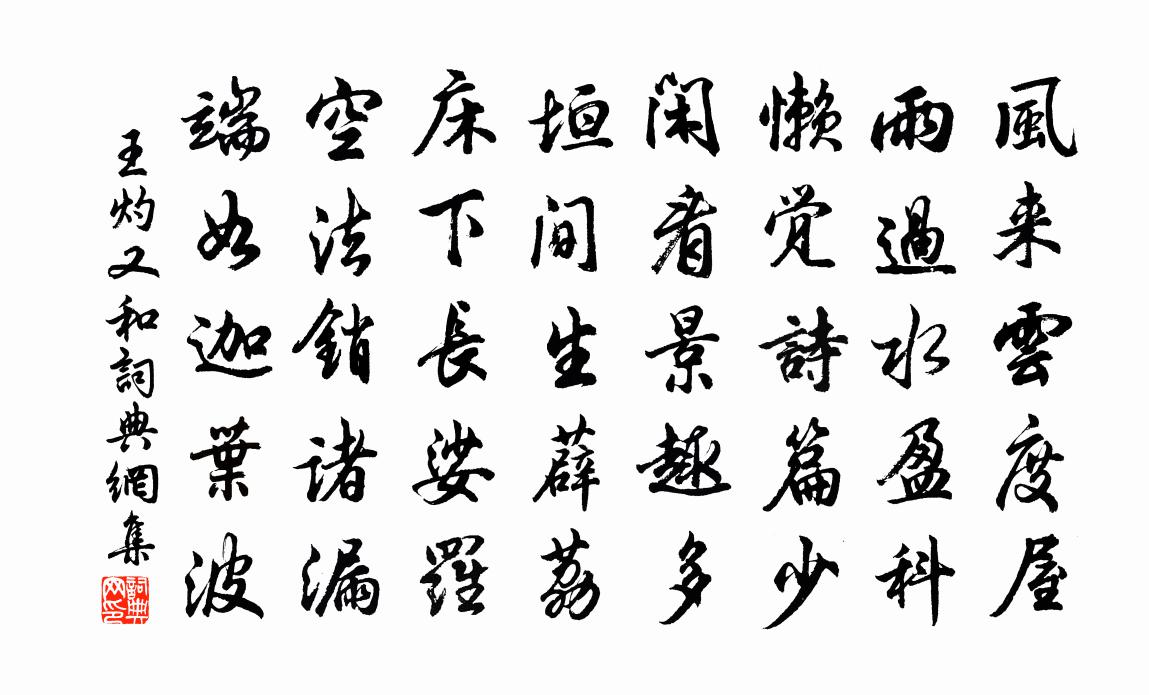 風来雲度屋
雨過水盈科
懶覚詩篇少
閑看景趣多
垣間生薜荔
床下長娑羅
空法銷諸漏
端如迦葉波
王灼又和詞典網集
詞典網印